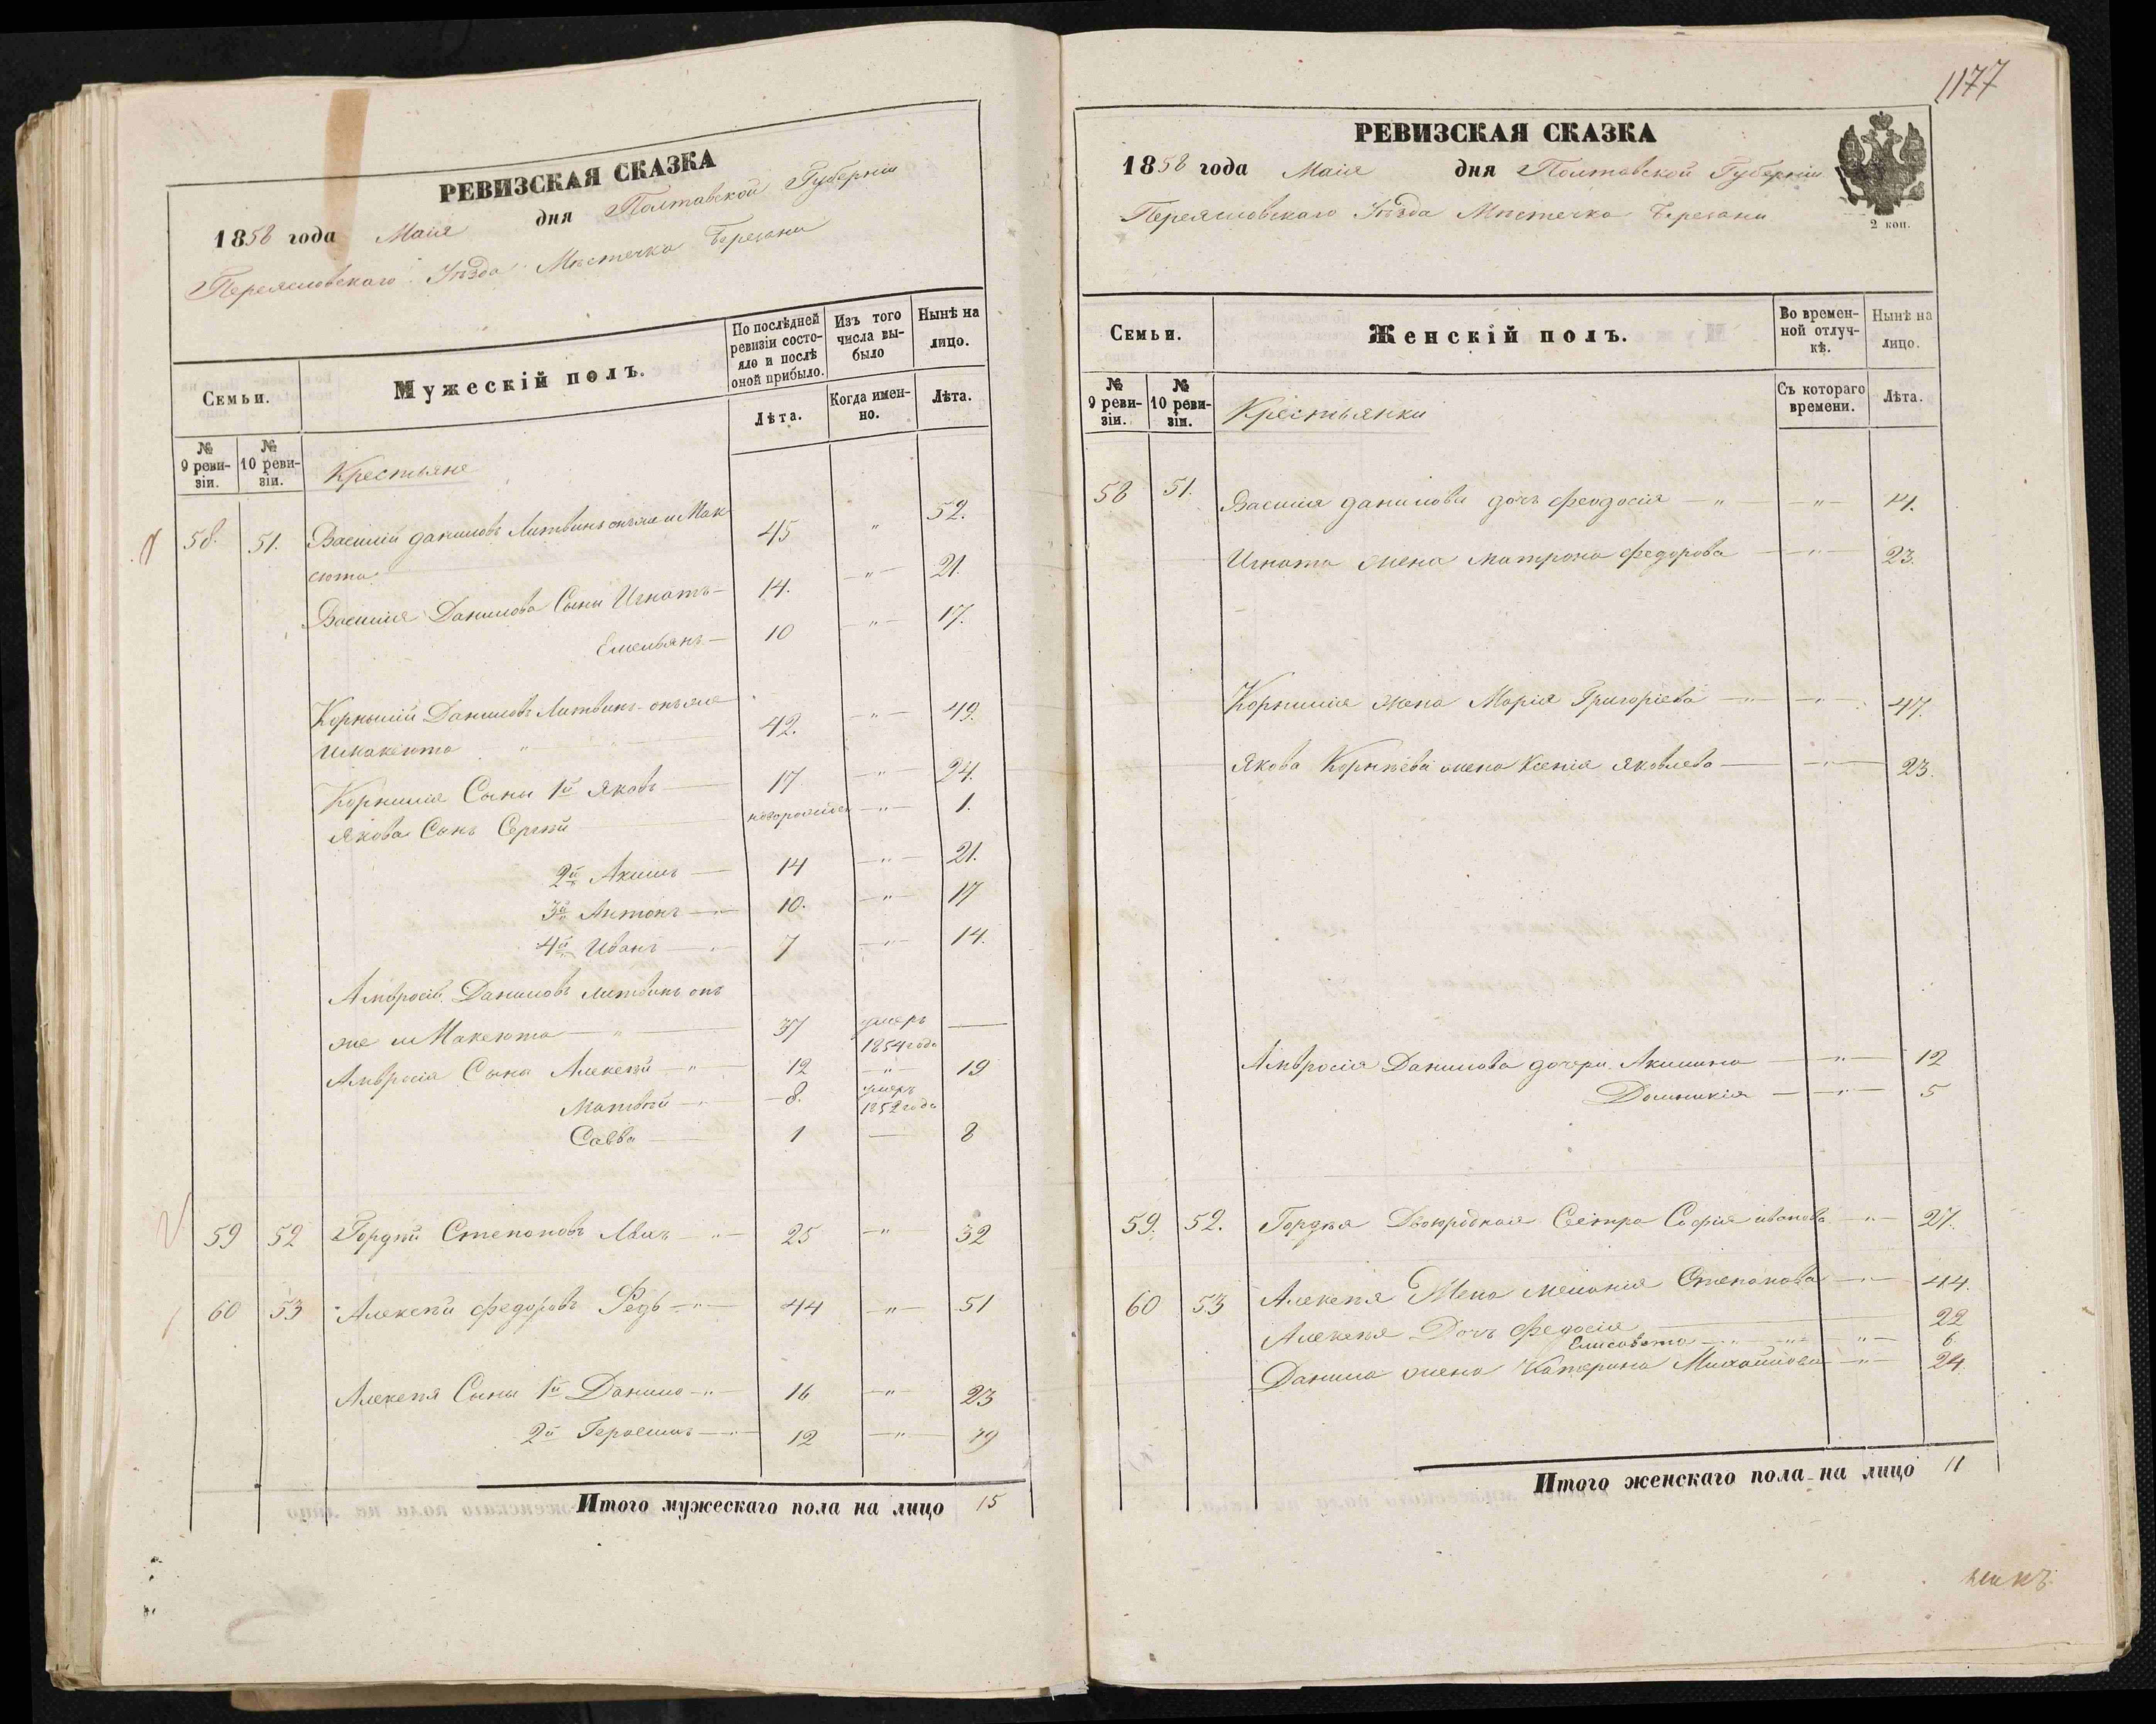 РЕВИЗСКАЯ СКАЗКА
1858 года Маія дня Полтавской Губерніи
Переясловскаго Уѣзда Мѣстечка Березани
Семьи.
Мужескій полъ.
По послѣдней ревизіи состояло и послѣ оной прибыло.
Изъ того числа выбыло
Нынѣ на лицо.
№ 9 ревизіи.
№ 10 ревизіи.
Лѣта.
Когда именно.
Лѣта.
Крестьяне
58. 51. Василій Даниловъ Литвинъ онъ же и Мак 45 " 52.
сюта
Василія Данилова Сыны Игнатъ 14. " 21.
Емельянъ 10 " 17.
Корнилій Даниловъ Литвинъ онъ же 42. " 49.
и Максюта "
Корнилія Сыны 1й Яковъ 17 " 24.
Якова Сынъ Сергѣй новорожден " 1.
2й Акимъ 14 " 21.
3й Антонъ 10. " 17
4й Иванъ 7 " 14.
Амвросій Даниловъ Литвинъ онъ
же и Максюта " 37 умеръ 1854 года
Амвросія Сына Алексѣй " 12 " 19
Матвѣй 8. умеръ 1852 года
Савва 1 8
59 52 Гордѣй Степановъ " 25 " 32
60 53 Алексѣй Федоровъ Редъ " 44 " 51
Алексѣя Сыны 1й Данило " 16 " 23
2й Герасимъ " 12 " 19
Итого мужескаго пола на лицо 15
1177
РЕВИЗСКАЯ СКАЗКА
1858 года Маія дня Полтавской Губерніи
Переясловскаго Уѣзда Мѣстечка Березани
2 коп.
Семьи.
Женскій полъ.
Во временной отлучкѣ.
Нынѣ на лицо.
№ 9 ревизіи.
№ 10 ревизіи.
Съ котораго времени.
Лѣта.
Крестьянки
58 51. Василія Данилова дочь Феодосія " "
Игната жена Матрона Федорова " 23.
Корнилія жена Марія Григоріева " " 47.
Якова Корнѣева жена Ксенія Яковлева " 23.
Амвросія Данилова дочери Акилина " 12
Домникія " 5
59. 52. Гордѣя Двоюродная Сестра Софія Иванова " 27.
60 53 Алексѣя Жена Меланія Степанова " 44.
Алексѣя Дочь Федосія 22
Елисавета " " " 6.
Данила жена Катерина Михайлова " 24
Итого женскаго пола на лицо 11